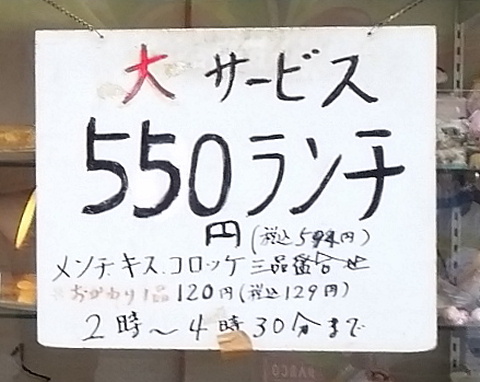 大サービス
550ランチ
円(税込594円)
メンチ.キス.コロッケ三品盛合せ
※おかわり1品120円(税込129円)
2時〜4時30分まで